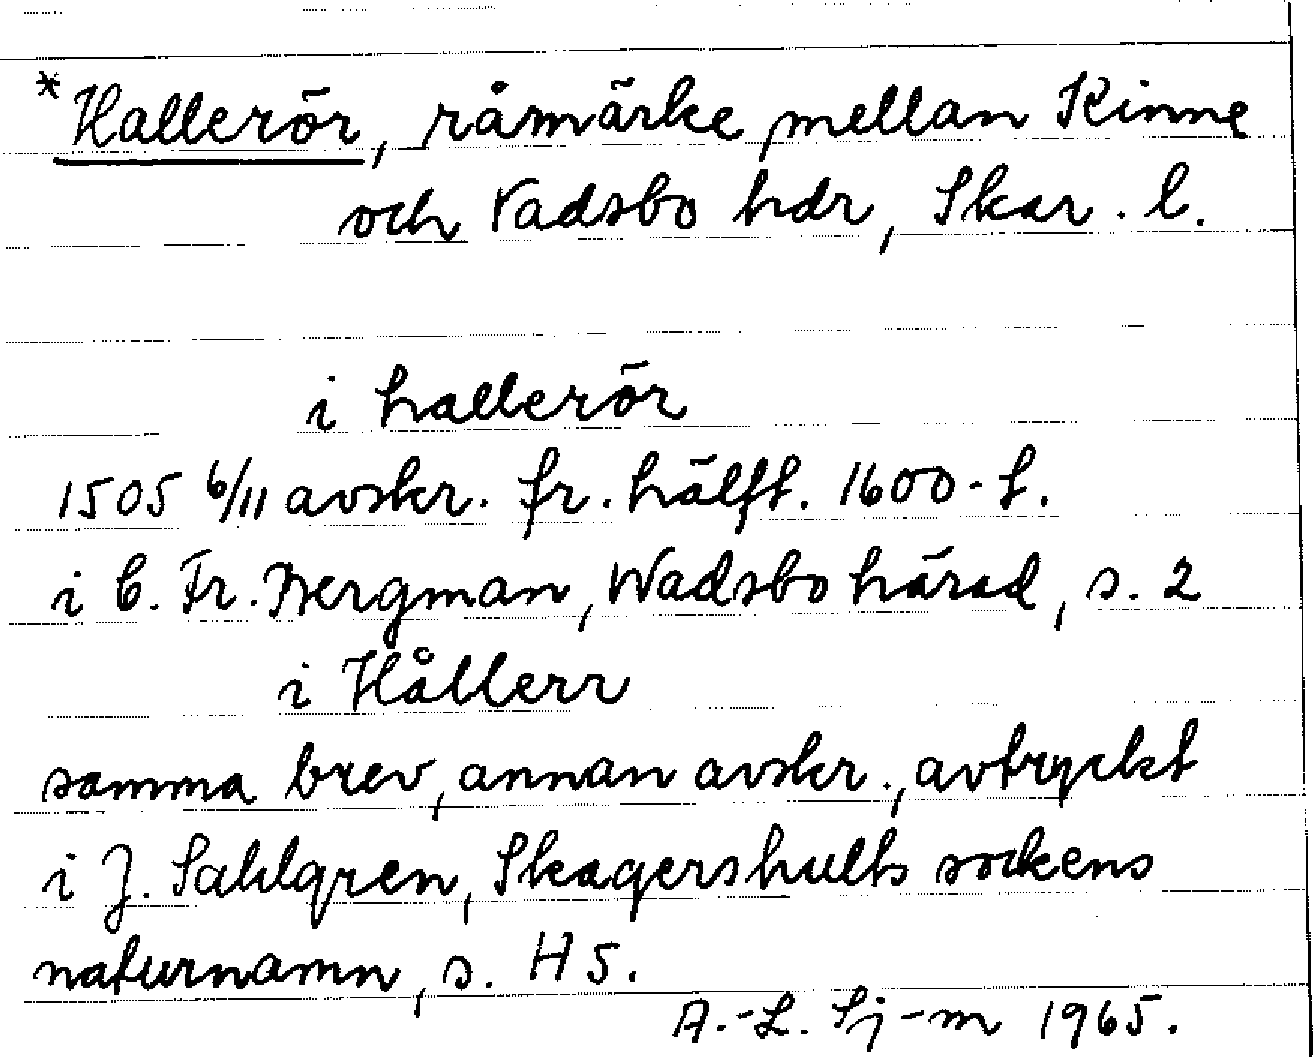 *Hallerör, råmärke mellan Kinne
och Vadsbo hdr, Skar. l.
i hallerör
1505 6/11 avskr. fr. hälft. 1600-t.
i C. Fr. Bergman, Wadsbo härad, s. 2
i Hållerr
samma brev, annan avskr., avtryckt
i J. Sahlgren, Skagershults sockens
naturnamn, s. H 5.
A.-L. Sj-m 1965.